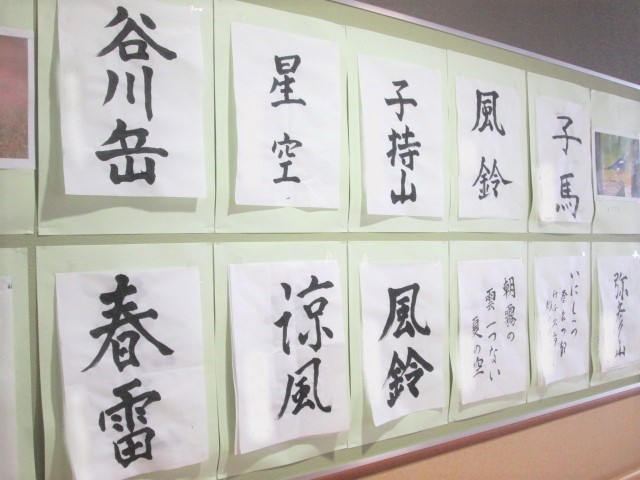 谷川岳
星空
子持山
風鈴
子馬
春雷
涼風
風鈴
朝霧の
雲一つない
夏の空
いにしへの